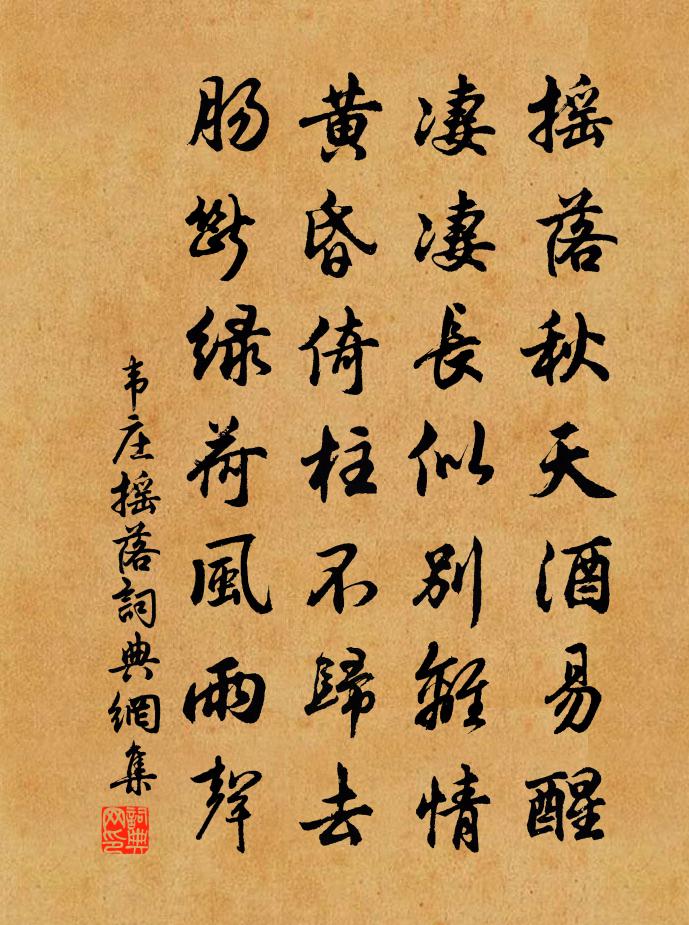 揺落秋天酒易醒
凄凄長似別離情
黄昏倚柱不歸去
腸斷緑荷風雨聲
韦庄揺落詞典網集
詞典网印